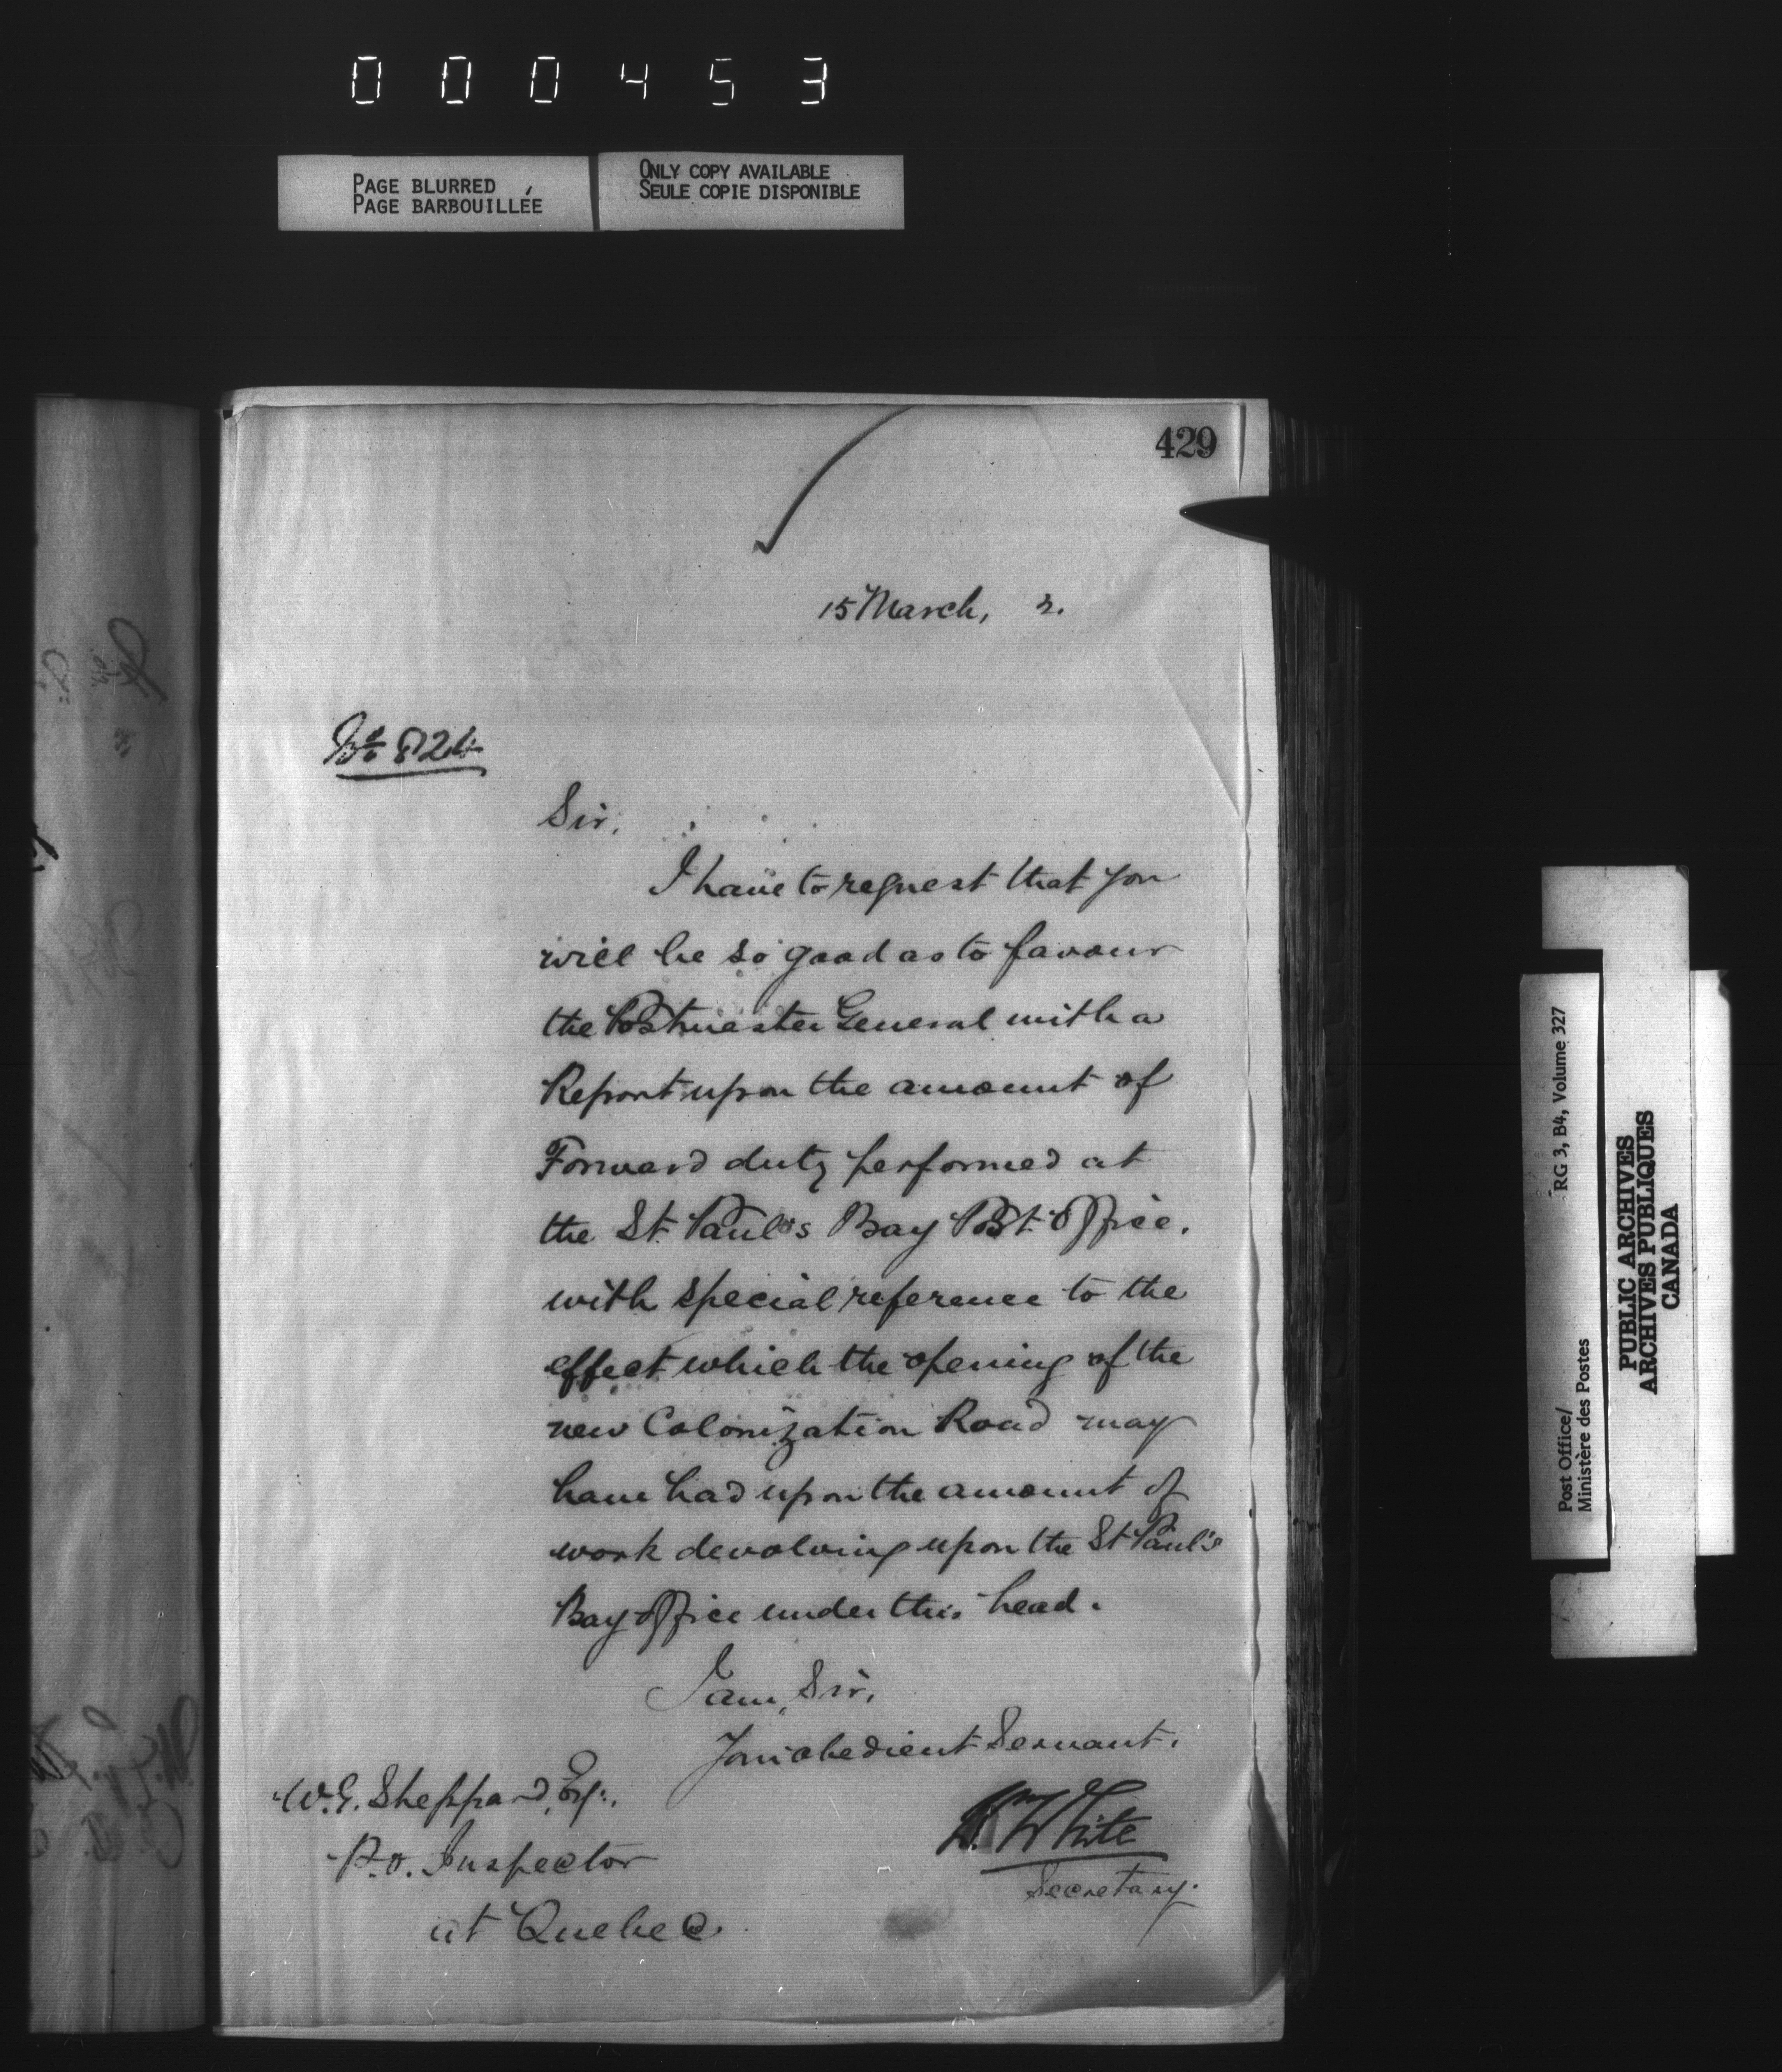 000453
PAGE BLURRED
PAGE BARBOUILLÉE
ONLY COPY AVAILABLE
SEULE COPIE DISPONIBLE
429
15 March, 2.
Sir,
I have to request that you
will be so good as to favour
the Postmaster General with a
Report upon the amount of
Forward duty performed at
the St. Paul's Bay Post Office,
with special reference to the
effect which the opening of the
new Colonization Road may
have had upon the amount of
work devolving upon the St Paul's
Bay Office under this head.
I am, Sir,
Your obedient Servant,
Wm White
Secretary.
W.G. Sheppard, Esq:,
P.O. Inspector
at Quebec.
RG 3, B4, Volume 327
Post Office/
Ministère des Postes
PUBLIC ARCHIVES
ARCHIVES PUBLIQUES
CANADA